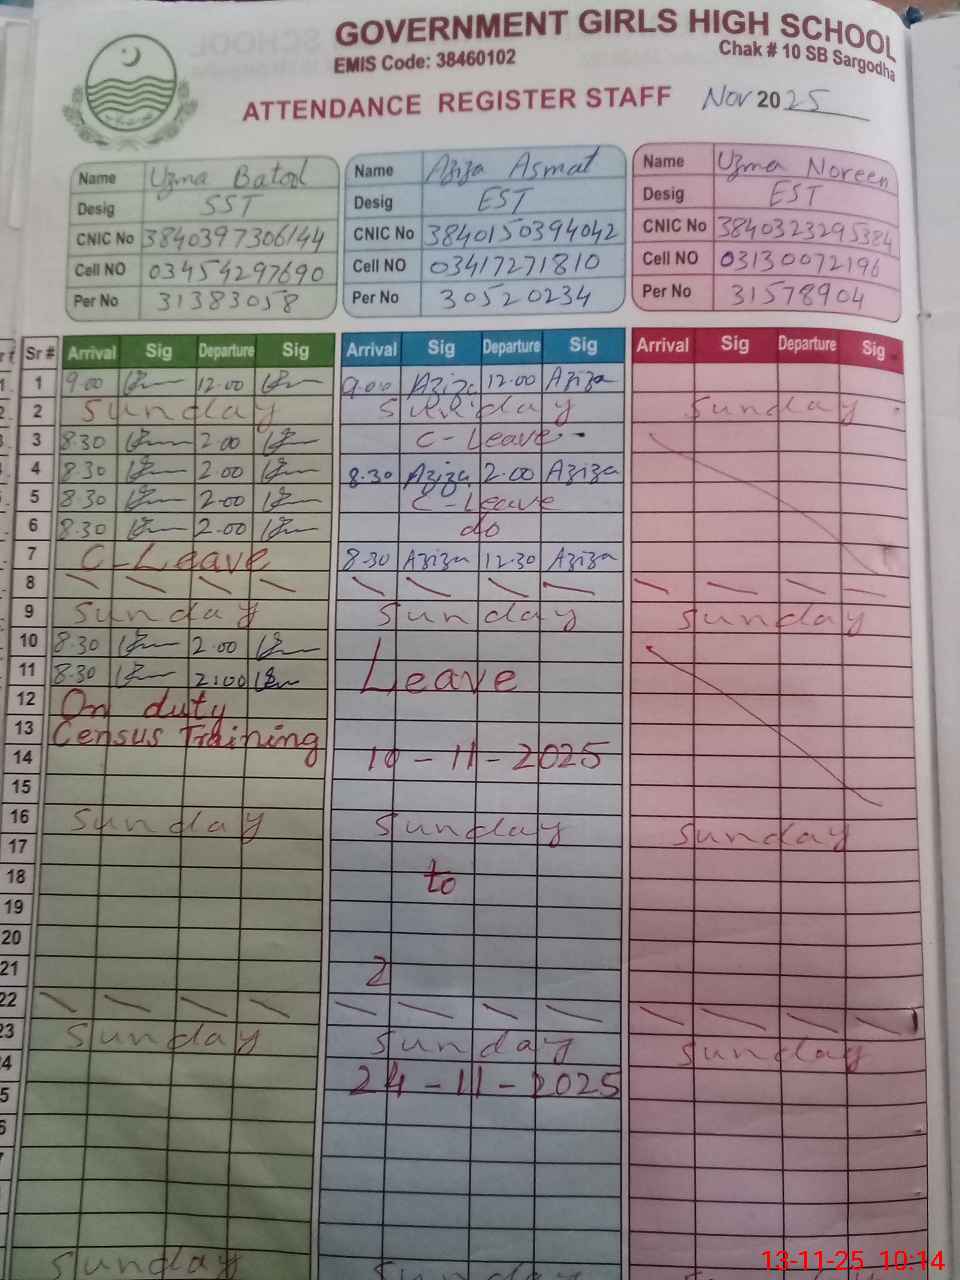 GOVERNMENT GIRLS HIGH SCHOOL
EMIS Code: 38460102
Chak # 10 SB Sargodha
ATTENDANCE REGISTER STAFF Nov 2025
Name Uzma Batool
Desig SST
CNIC No 3840397306144
Cell NO 03454297690
Per No 31383058
Name Aziza Asmat
Desig EST
CNIC No 3840150394042
Cell NO 03417271810
Per No 30520234
Name Uzma Noreen
Desig EST
CNIC No 3840323295384
Cell NO 03130072196
Per No 31578904
Sr # Arrival Sig Departure Sig Arrival Sig Departure Sig Arrival Sig Departure Sig
1 9.00 12.00 9.00 Aziza 12.00 Aziza
2 Sunday Sunday Sunday
3 8.30 2.00 C-Leave
4 8.30 2.00 8.30 Aziza 2.00 Aziza
5 8.30 2.00 C-Leave
6 8.30 2.00 do
7 C-Leave 8.30 Aziza 12.30 Aziza
8
9 Sunday Sunday Sunday
10 8.30 2.00
11 8.30 2:00 Leave
12 On duty
13 Census Training
14 10-11-2025
15
16 Sunday Sunday Sunday
17
18 to
19
20
21 2
22
23 Sunday Sunday Sunday
4 24-11-2025
5
6
7
Sunday Sunday
13-11-25 10:14